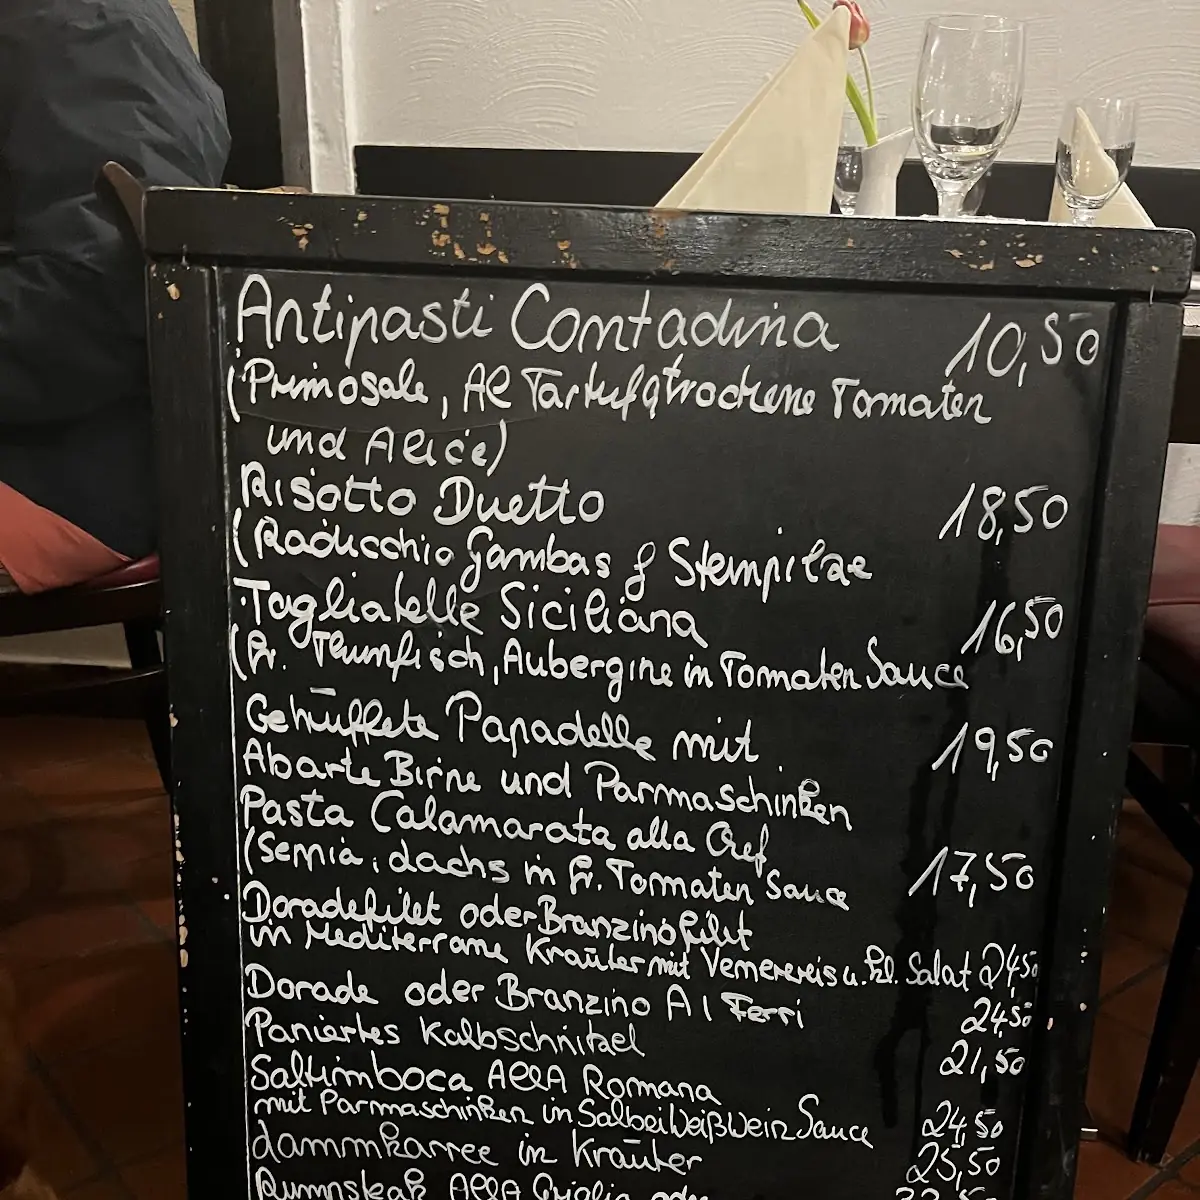 Antipasti Contadina 10,50
(Primosale, Al Tartufo, getrocknene Tomaten
und Alice)
Risotto Duetto 18,50
(Radicchio Gambas & Steinpilze
Tagliatelle Siciliana 16,50
(fr. Thunfisch, Aubergine in Tomaten Sauce
Gehüffete Papadelle mit 19,50
Abarte Birne und Parmaschinken
Pasta Calamarata alla Chef
(Semia, dachs in fr. Tomaten Sauce 17,50
Doradefilet oder Branzinofilet
in Mediterrane Kräuter mit Venerereis u. kl. Salat 24,50
Dorade oder Branzino Al Ferri 24,50
Paniertes Kalbschnitzel 21,50
Saltimboca Alla Romana
mit Parmaschinken in Salbei Weißwein Sauce 24,50
Lammkarree in Kräuter 25,50
Rumpsteak Alla Griglia oder